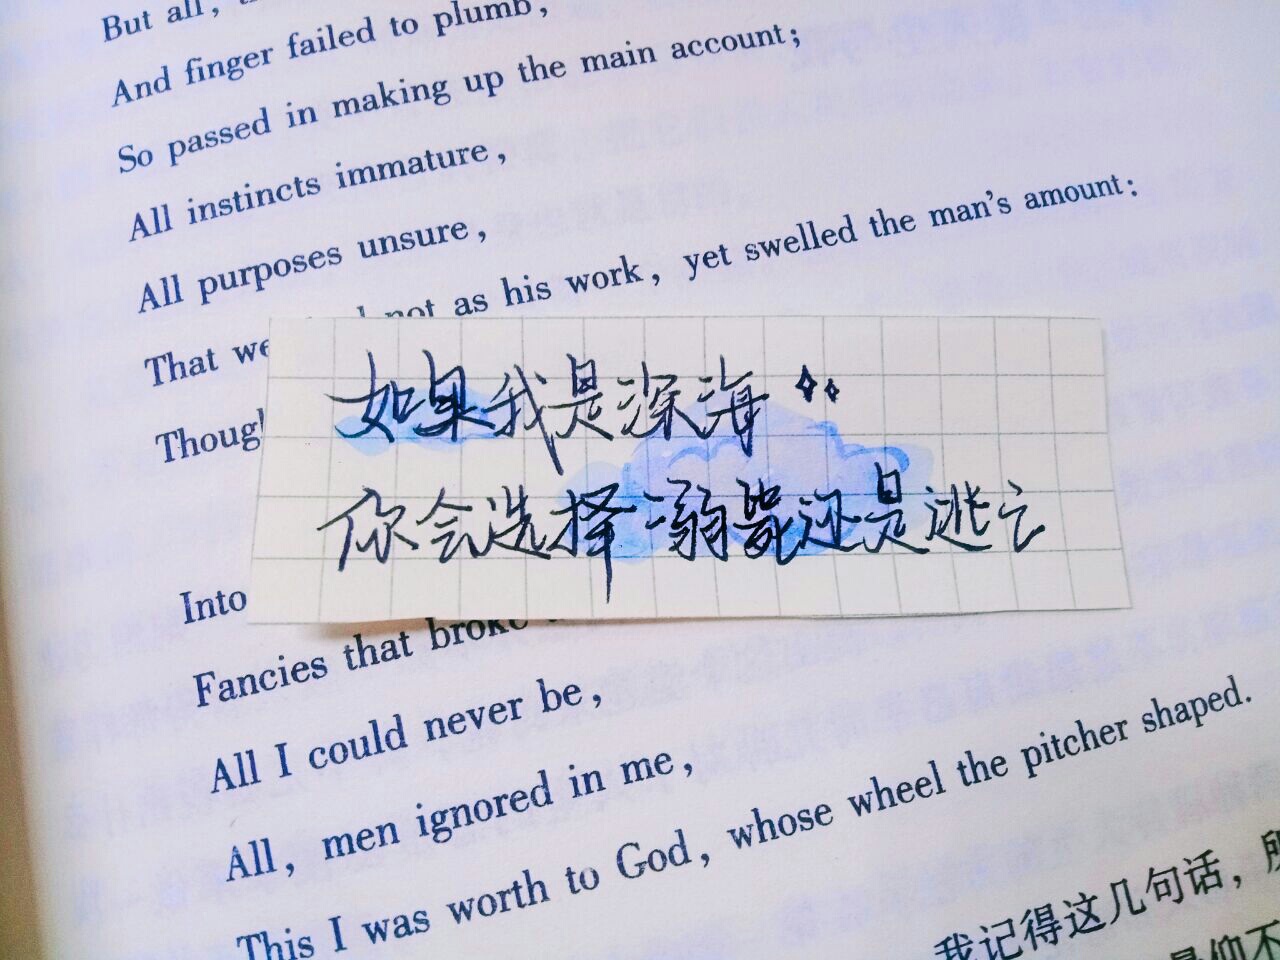 But all,
And finger failed to plumb,
So passed in making up the main account;
All instincts immature,
All purposes unsure,
That we not as his work, yet swelled the man's amount:
Though
如果我是深海
你会选择溺毙还是逃亡
Into
Fancies that broke
All I could never be,
All, men ignored in me,
This I was worth to God, whose wheel the pitcher shaped.
我记得这几句话，所
仰不